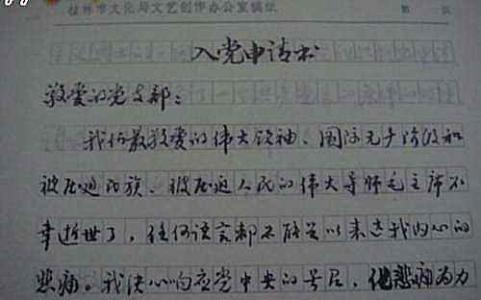 桂林市文化局文艺创作办公室稿纸
入党申请书
敬爱的党支部：
我们最敬爱的伟大领袖、国际无产阶级和
被压迫民族、被压迫人民的伟大导师毛主席不
幸逝世了，任何语言都不能以来表我内心的
悲痛。我决心响应党中央的号召，化悲痛为力